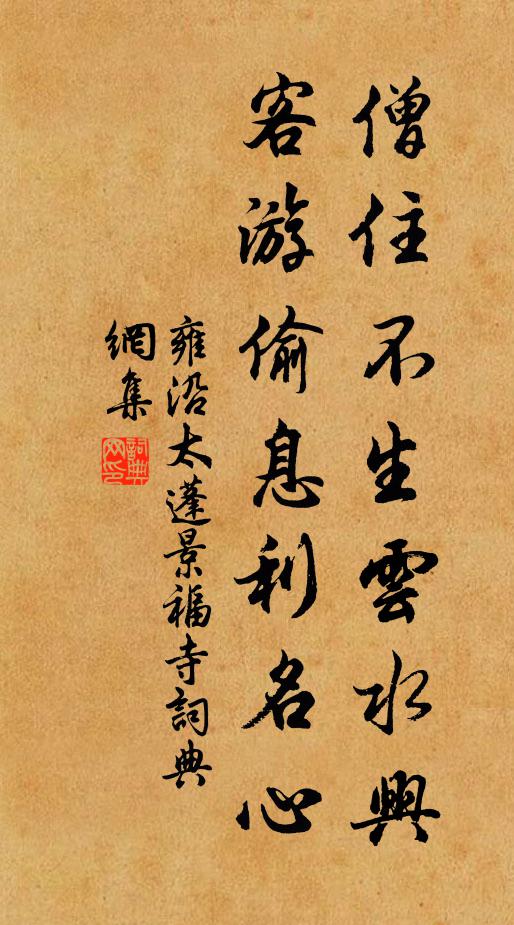 僧住不生雲水興
客游偷息利名心
雍沿太蓬景福寺詞典
網集
詞典網印